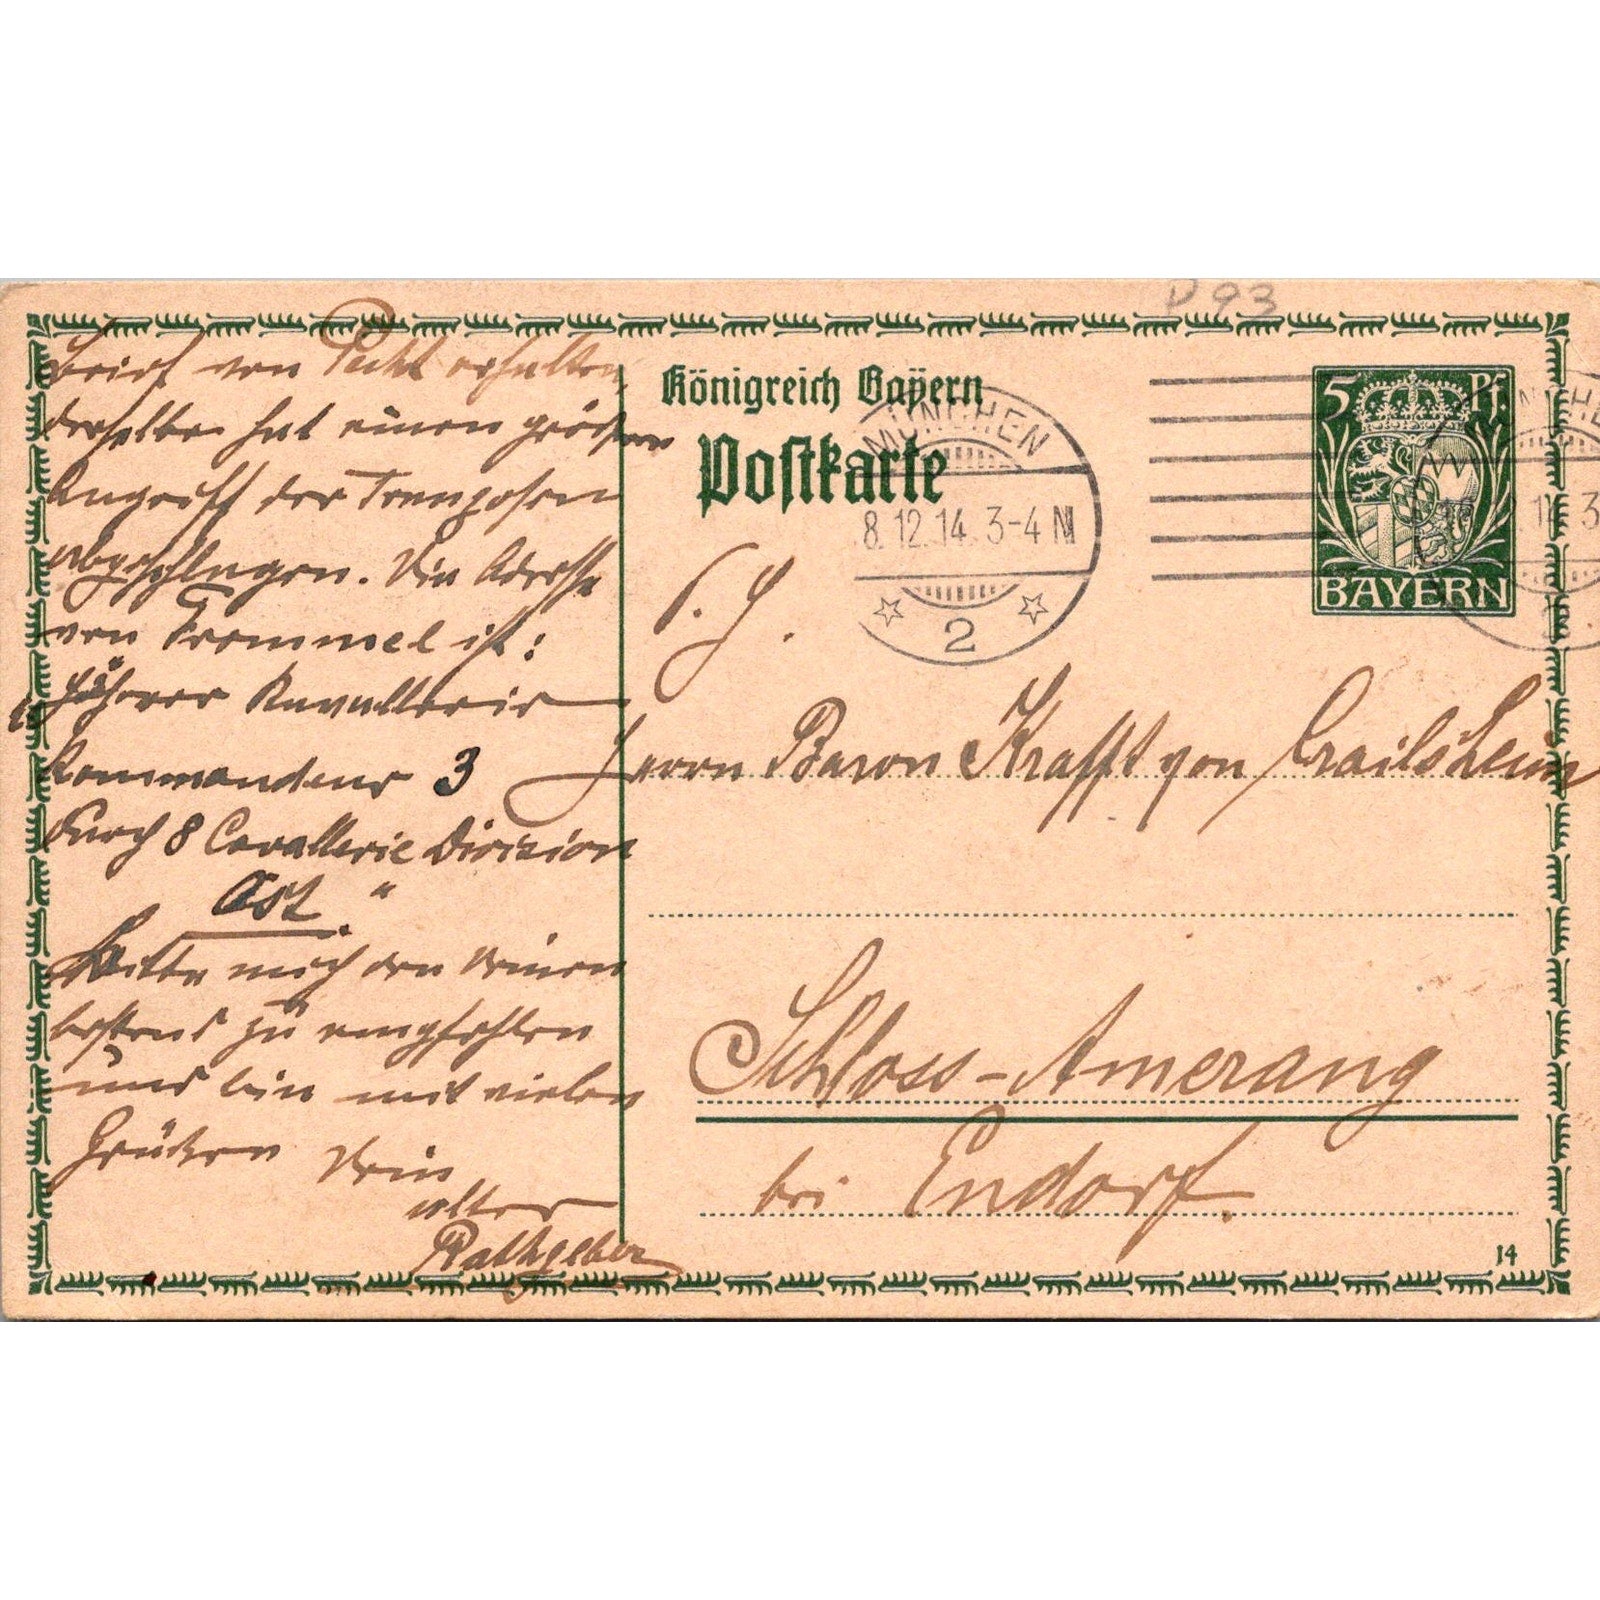 P 93
Brief von Pacht erhalten,
derselbe hat einen größeren
Angriff der Franzosen
abgeschlagen. Die Adresse
von Trommel ist:
„Höherer Kavallerie
Kommandeur 3
durch 8 Cavallerie Division
Ost."
Bitte mich den Deinen
bestens zu empfehlen
und bin mit vielen
Grüßen Dein
alter
Rathgeber
Königreich Bayern
Postkarte
MÜNCHEN
8.12.14. 3-4 N
2
5 Pf.
BAYERN
S. H.
Herrn Baron Krafft von Crailsheim
Schloss-Amerang
bei Endorf.
14